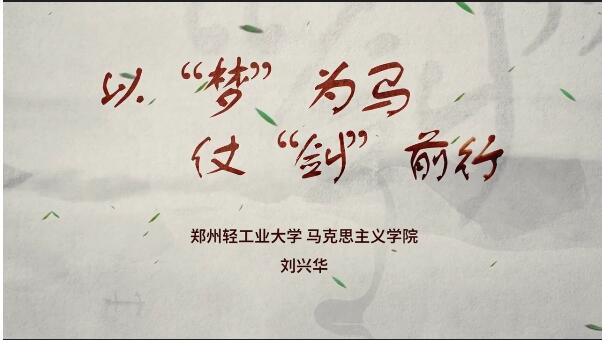 以“梦”为马
仗“剑”前行
郑州轻工业大学 马克思主义学院
刘兴华